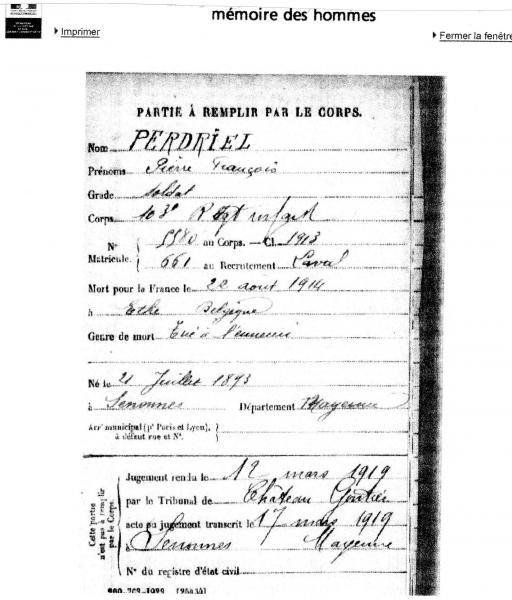 mémoire des hommes
Imprimer
Fermer la fenêtre
PARTIE À REMPLIR PAR LE CORPS.
Nom PERDRIEL
Prénoms Pierre François
Grade soldat
Corps 103e Rgt
N° Matricule. 5580 au Corps. — Cl. 1913
661 au Recrutement Laval
Mort pour la France le 22 aout 1914
à Ethe Belgique
Genre de mort Tué à l'ennemi
Né le 21 Juillet 1893
à Senonnes Département Mayenne
Arrt municipal (pr Paris et Lyon), à défaut rue et N°.
Cette partie n'est pas à remplir par le Corps.
Jugement rendu le 12 mars 1919
par le Tribunal de Château Gontier
acte ou jugement transcrit le 17 mars 1919
à Senonnes Mayenne
N° du registre d'état civil